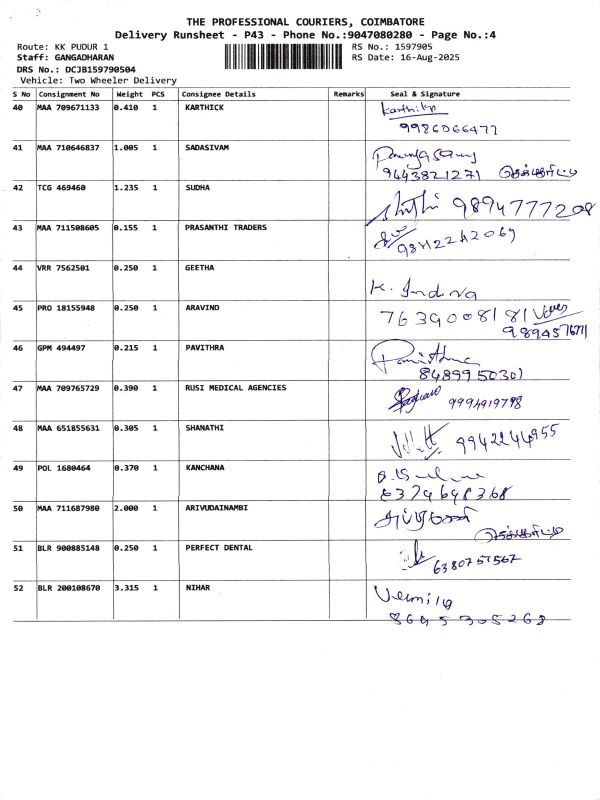 THE PROFESSIONAL COURIERS, COIMBATORE
Delivery Runsheet - P43 - Phone No.:9047080280 - Page No.:4
Route: KK PUDUR 1 RS No.: 1597905
Staff: GANGADHARAN RS Date: 16-Aug-2025
DRS No.: DCJB159790504
Vehicle: Two Wheeler Delivery
S No Consignment No Weight PCS Consignee Details Remarks Seal & Signature
40 MAA 709671133 0.410 1 KARTHICK
9986066477
41 MAA 710646837 1.005 1 SADASIVAM
9443821271
42 TCG 469460 1.235 1 SUDHA
9894777208
43 MAA 711508605 0.155 1 PRASANTHI TRADERS
9842242069
44 VRR 7562501 0.250 1 GEETHA
K. Indira
45 PRO 18155948 0.250 1 ARAVIND
7639008181
46 GPM 494497 0.215 1 PAVITHRA
Pavithra
8489950301
47 MAA 709765729 0.390 1 RUSI MEDICAL AGENCIES
9994919798
48 MAA 651855631 0.305 1 SHANATHI
9942244955
49 POL 1680464 0.370 1 KANCHANA
6374698368
50 MAA 711687980 2.000 1 ARIVUDAINAMBI
51 BLR 900885148 0.250 1 PERFECT DENTAL
6380757567
52 BLR 200108670 3.315 1 NIHAR
8695305268